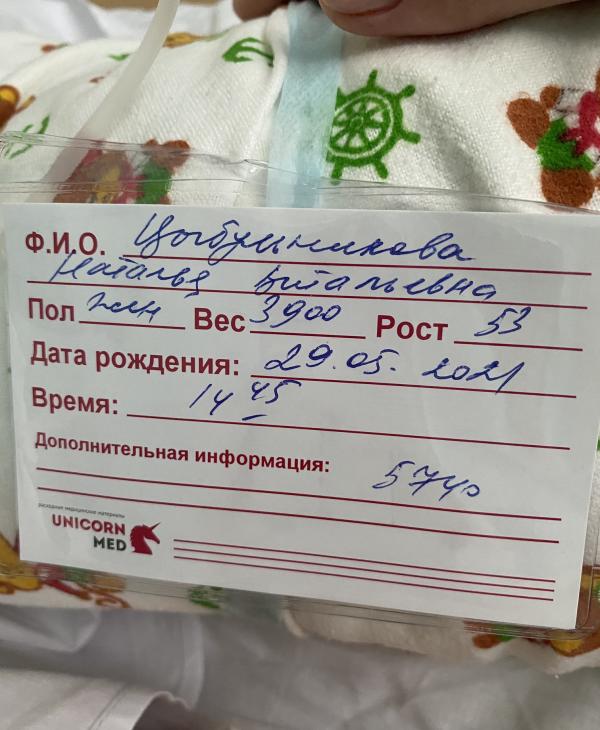 Ф.И.О. Цыбульникова
Наталья Витальевна
Пол жен Вес 3900 Рост 53
Дата рождения: 29.05.2021
Время: 14 45
Дополнительная информация:
5740
расходные медицинские материалы
UNICORN
MED